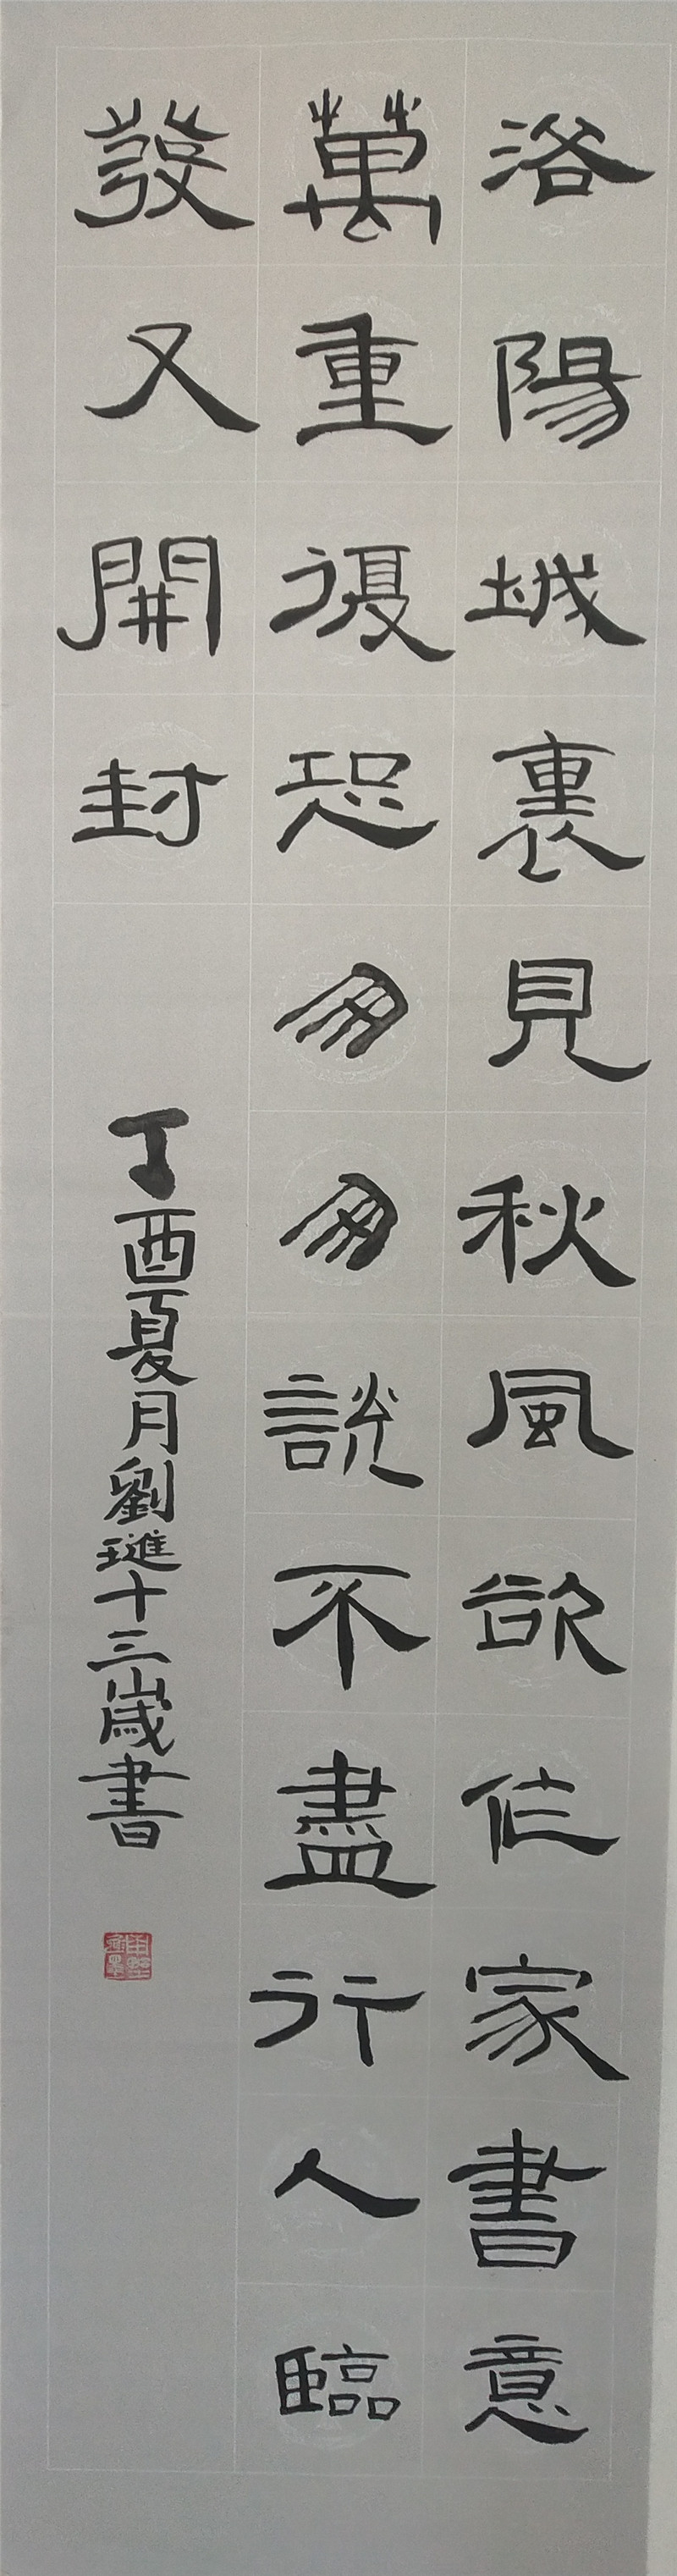 洛陽城裏見秋風欲作家書意
萬重復恐匆匆說不盡行人臨
發又開封
丁酉夏月劉璡十三歲書